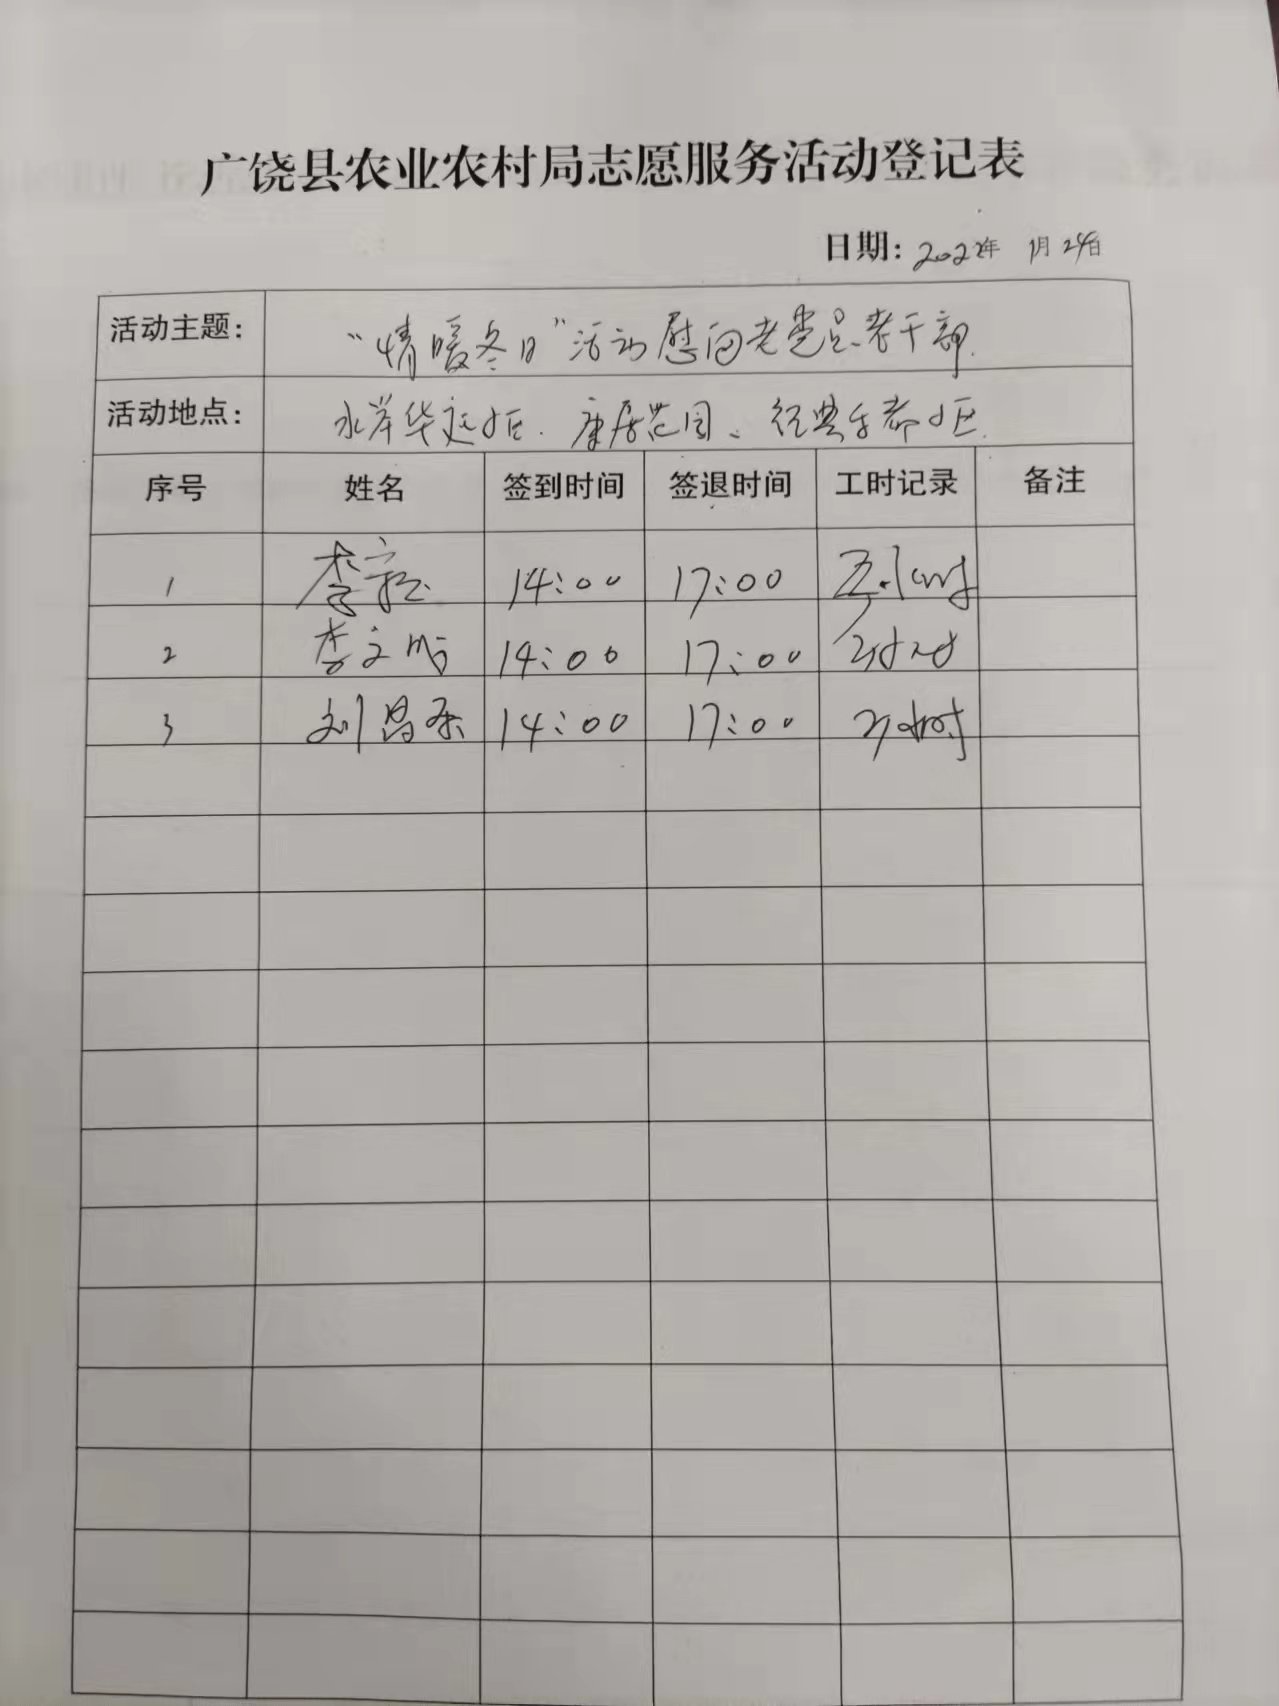 广饶县农业农村局志愿服务活动登记表
日期: 2022年 1月24日
活动主题: "情暖冬日"活动慰问老党员、老干部.
活动地点: 水岸华庭小区. 康居范园、经典乐都小区.
序号 姓名 签到时间 签退时间 工时记录 备注
1 李 14:00 17:00 小时
2 李文 14:00 17:00 3小时
3 刘昌 14:00 17:00 3小时